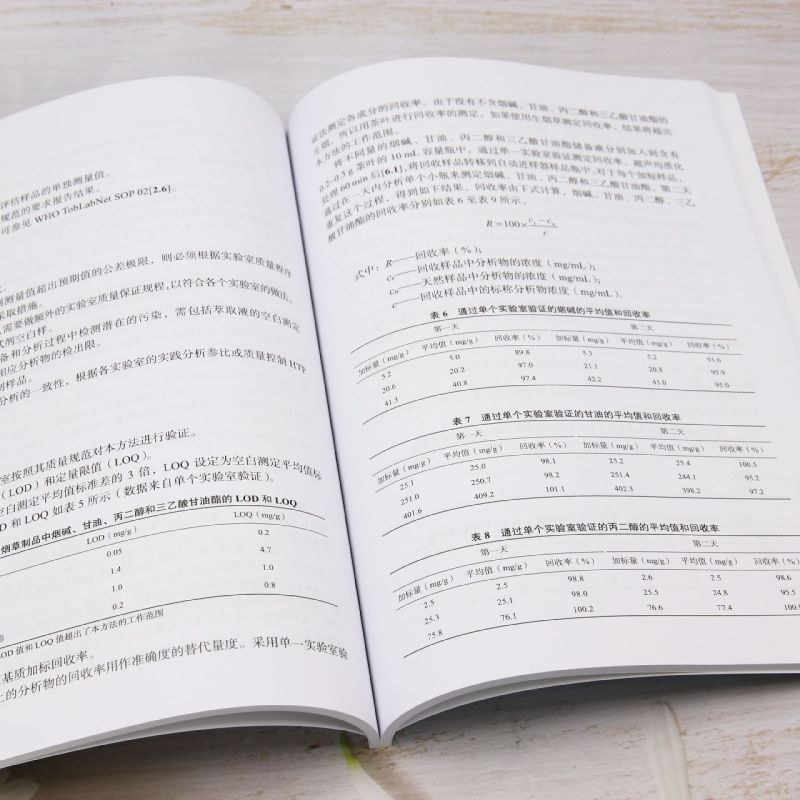 评估样品的单独测量值。
规范的要求报告结果。
可参见 WHO TobLabNet SOP 02[2.6]。
测量值超出预期值的公差极限，则必须根据实验室质量程序
采取措施。
需要做额外的实验室质量保证规程，以符合各个实验室的做法。
式剂空白样。
备和分析过程中检测潜在的污染，需包括萃取液的空白测定
相应分析物的检出限。
制样品。
分析的一致性，根据各实验室的实践分析参比或质量控制 HTP
室按照其质量规范对本方法进行验证。
（LOD）和定量限值（LOQ）。
空白测定平均值标准差的 3 倍，LOQ 设定为空白测定平均值标
D 和 LOQ 如表 5 所示（数据来自单个实验室验证）。
烟草制品中烟碱、甘油、丙二醇和三乙酸甘油酯的 LOD 和 LOQ
LOD (mg/g) LOQ (mg/g)
0.05 0.2
1.4 4.7
1.0 1.0
0.2 0.8
LOD 值和 LOQ 值超出了本方法的工作范围
基质加标回收率。
上的分析物的回收率用作准确度的替代量度。采用单一实验室验
证法测定各成分的回收率。由于没有不含烟碱、甘油、丙二醇和三乙酸甘油酯的
生烟，所以用茶叶进行回收率的测定。如果使用生烟草测定回收率，结果将超出
本方法的工作范围。
将不同量的烟碱、甘油、丙二醇和三乙酸甘油酯储备液分别加入到含有
0.2~0.3 g 茶叶的 10 mL 容量瓶中，通过单一实验室验证测定回收率。超声均质化
处理 60 min 后[6.1]，将回收样品转移到自动进样器样品瓶中。对于每个加标样品，
通过在一天内分析单个小瓶来测定烟碱、甘油、丙二醇和三乙酸甘油酯，第二天
重复这个过程，得到如下结果。回收率由下式计算，烟碱、甘油、丙二醇、三乙
酸甘油酯的回收率分别如表 6 至表 9 所示。
R=100×(cₜ−cₙ)/c
式中：R——回收率（%）；
——回收样品中分析物的浓度（mg/mL）；
cₙ——天然样品中分析物的浓度（mg/mL）；
c——回收样品中的标称分析物浓度（mg/mL）。
表 6 通过单个实验室验证的烟碱的平均值和回收率
第一天 第二天
加标量 (mg/g) 平均值 (mg/g) 回收率 (%) 加标量 (mg/g) 平均值 (mg/g) 回收率 (%)
5.2 5.0 89.8 5.3 5.2 91.6
20.6 20.2 97.0 21.1 20.8 95.9
41.3 40.8 97.4 42.2 41.0 95.0
表 7 通过单个实验室验证的甘油的平均值和回收率
第一天 第二天
加标量 (mg/g) 平均值 (mg/g) 回收率 (%) 加标量 (mg/g) 平均值 (mg/g) 回收率 (%)
25.1 25.0 98.1 25.2 25.4 100.5
251.0 250.7 98.2 251.4 244.1 95.2
401.6 409.2 101.1 402.3 398.2 97.2
表 8 通过单个实验室验证的丙二醇的平均值和回收率
第一天 第二天
加标量 (mg/g) 平均值 (mg/g) 回收率 (%) 加标量 (mg/g) 平均值 (mg/g) 回收率 (%)
2.5 2.5 98.8 2.6 2.5 98.6
25.3 25.1 98.0 25.5 24.8 95.5
75.8 76.1 100.2 76.6 77.4